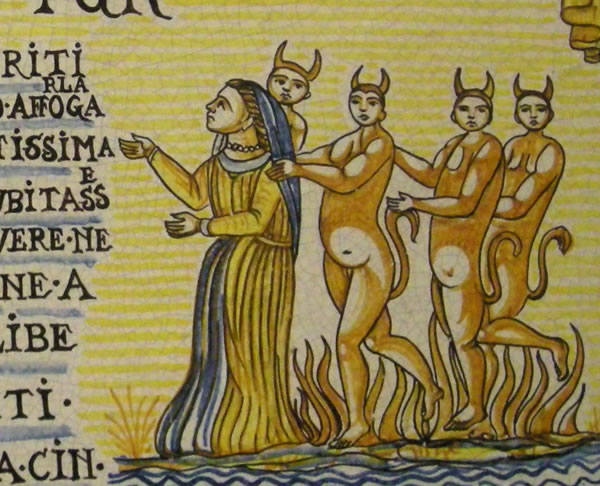 RITI
PLA
O·AFFOGA
TISSIMA
E
UBITASS
VERE·NE
NE·A
LIBE
TI·
A·CIN·